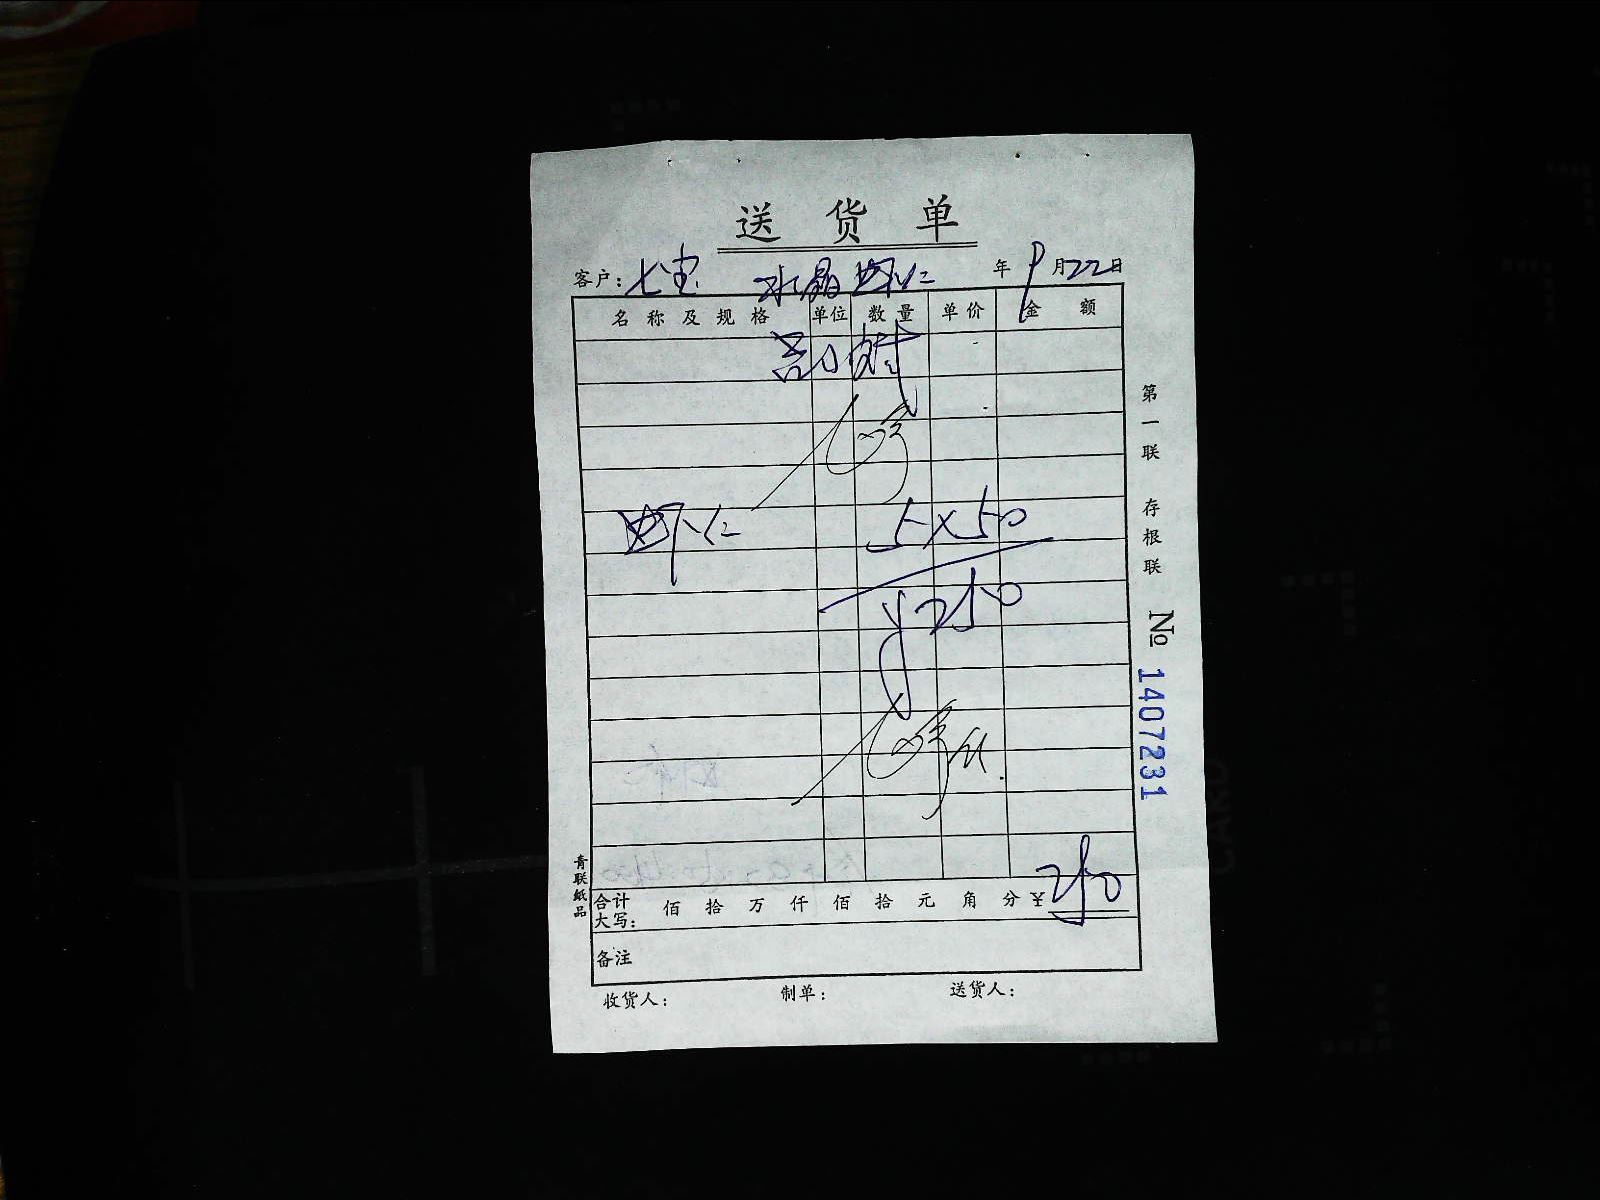 送货单
客户：七宝 水晶虾仁 年 9月22日
名称及规格 单位 数量 单价 金额
虾仁 5×50
¥250
合计大写： 佰 拾 万 仟 佰 拾 元 角 分 ¥250
备注
收货人： 制单： 送货人：
第一联 存根联
№ 1407231
青联纸品